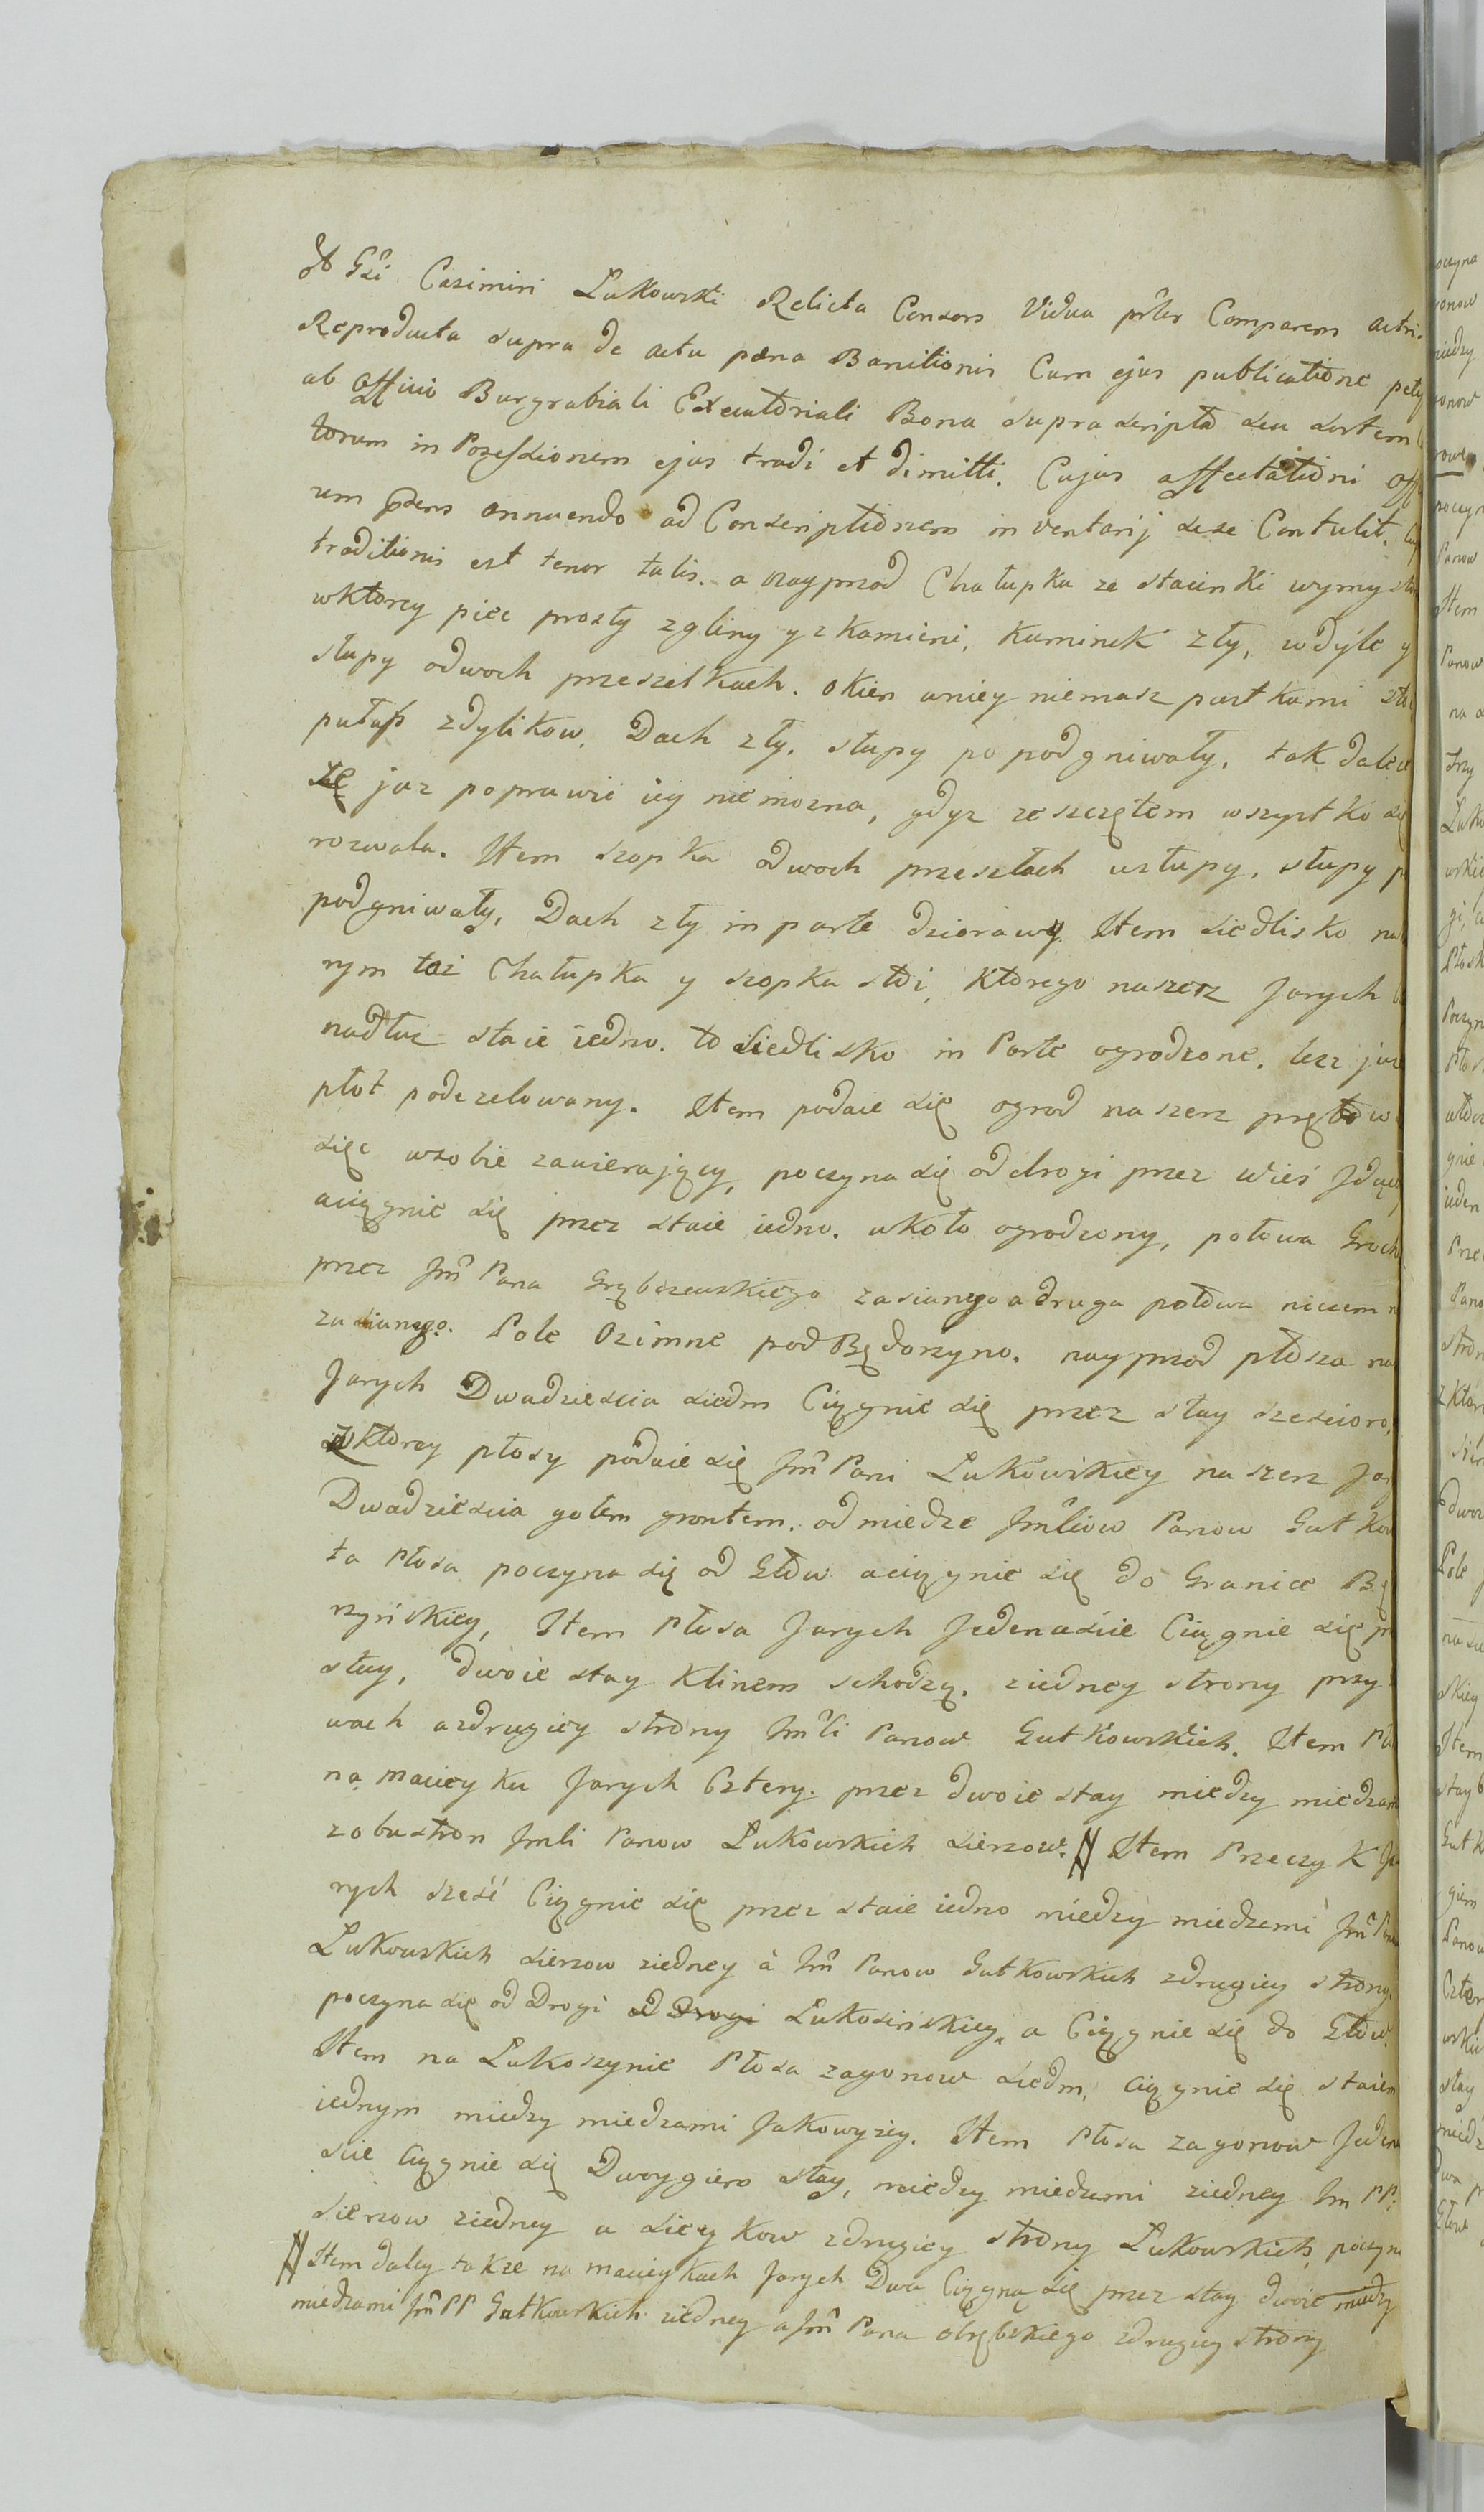 Gsi Casimiri Łukowski Relicta Consors Vidua prlis Comparens actri.
Reproducta supra de actu pæna Banitionis Cum ejus publicatione pety
ab Officio Burgrabiali Executoriali Bona suprascripta seu sortem
torum in Possessionem ejus tradi et dimitti. Cujus affectationi Off
um annuendo ad Conscriptionem inventarij sese Contulit.
traditionis est tenor talis. a nayprzod Chałupka ze staienki wymysz
wktorey piec prosty zgliny yzkamieni, kaminek zły, wdyle y
słupy odwoch przesełkach. okien uniey niemasz partkami
pułap zdylikow. Dach zły. słupy popodgniwały. tak dalece
że juz poprawic iey niemozna, gdyz zeszczętem wszystko się
rozwala. Item szopka odwoch przesłach wsłupy, słupy p
podgniwały, Dach zły in parte dziorawy. Item siedlisko na
rym taz Chałupka y szopka stoi, ktorego naszerz Jarych
nadłuz staie iedno. to Siedlisko in Parte ogrodzone. lecz juz
płot podezelowany. Item podaie się ogrod naszerz prętow
sięc wsobie zawierający, poczyna się oddrogi przez wieś Jdący
aciągnie się przez staie iedno. wkoło ogrodzony, połowa Groch
przez Jm Pana Grąbczewskiego zasianego adruga połowa niczem n
zasianego. Pole Ozimne pod Bądorzyno. nayprzod płosa na
Jarych Dwadziescia siedm Ciągnie się przez stay szescioro,
zktorey płosy podaie się Jm Pani Łukowskiey naszerz Jar
Dwadziescia gołem grontem. od miedze Jmliow Panow Gutkow
ta Płosa poczyna się od Głow aciągnie się do Granice Bą
rzyńskiey, Item Płosa Jarych Jedenaście Ciągnie się p
stay, dwoie stay Klinem schodzą. ziedney strony przy
wach azdrugiey strony Jmli Panow Gutkowskich. Item Pło
na macieyku Jarych Cztery. przez dwoie stay między miedzam
zobustron Jmli Panow Łukowskich sierzow. # Item Przeczyk Ja
rych sześć Ciągnie się przez staie iedno między miedzemi Jm Pan
Łukowskich sierzow ziedney à Jm Panow Gutkowskich zdrugiey strony.
poczyna się od Drogi od Drogi Łukosińskiey, a Ciągnie się do Głow.
Item na Łukoszynie Płosa zagonow siedm, ciągnie się staiem
iednym miedzy miedzami Jakowyzey. Item Płosa zagonow Jeden
scie ciągnie się Dwoygiero stay, miedzy miedzami ziedney Jm PP:
Sierzow ziedney a sieykow zdrugiey strony Łukowskich, poczyn
# Item daley takze na macieykach Jarych Dwa Ciągną się przez stay dwoie miedzy
miedzami Jm PP Gutkowskich ziedney a Jm Pana obrębskiego zdrugiey strony